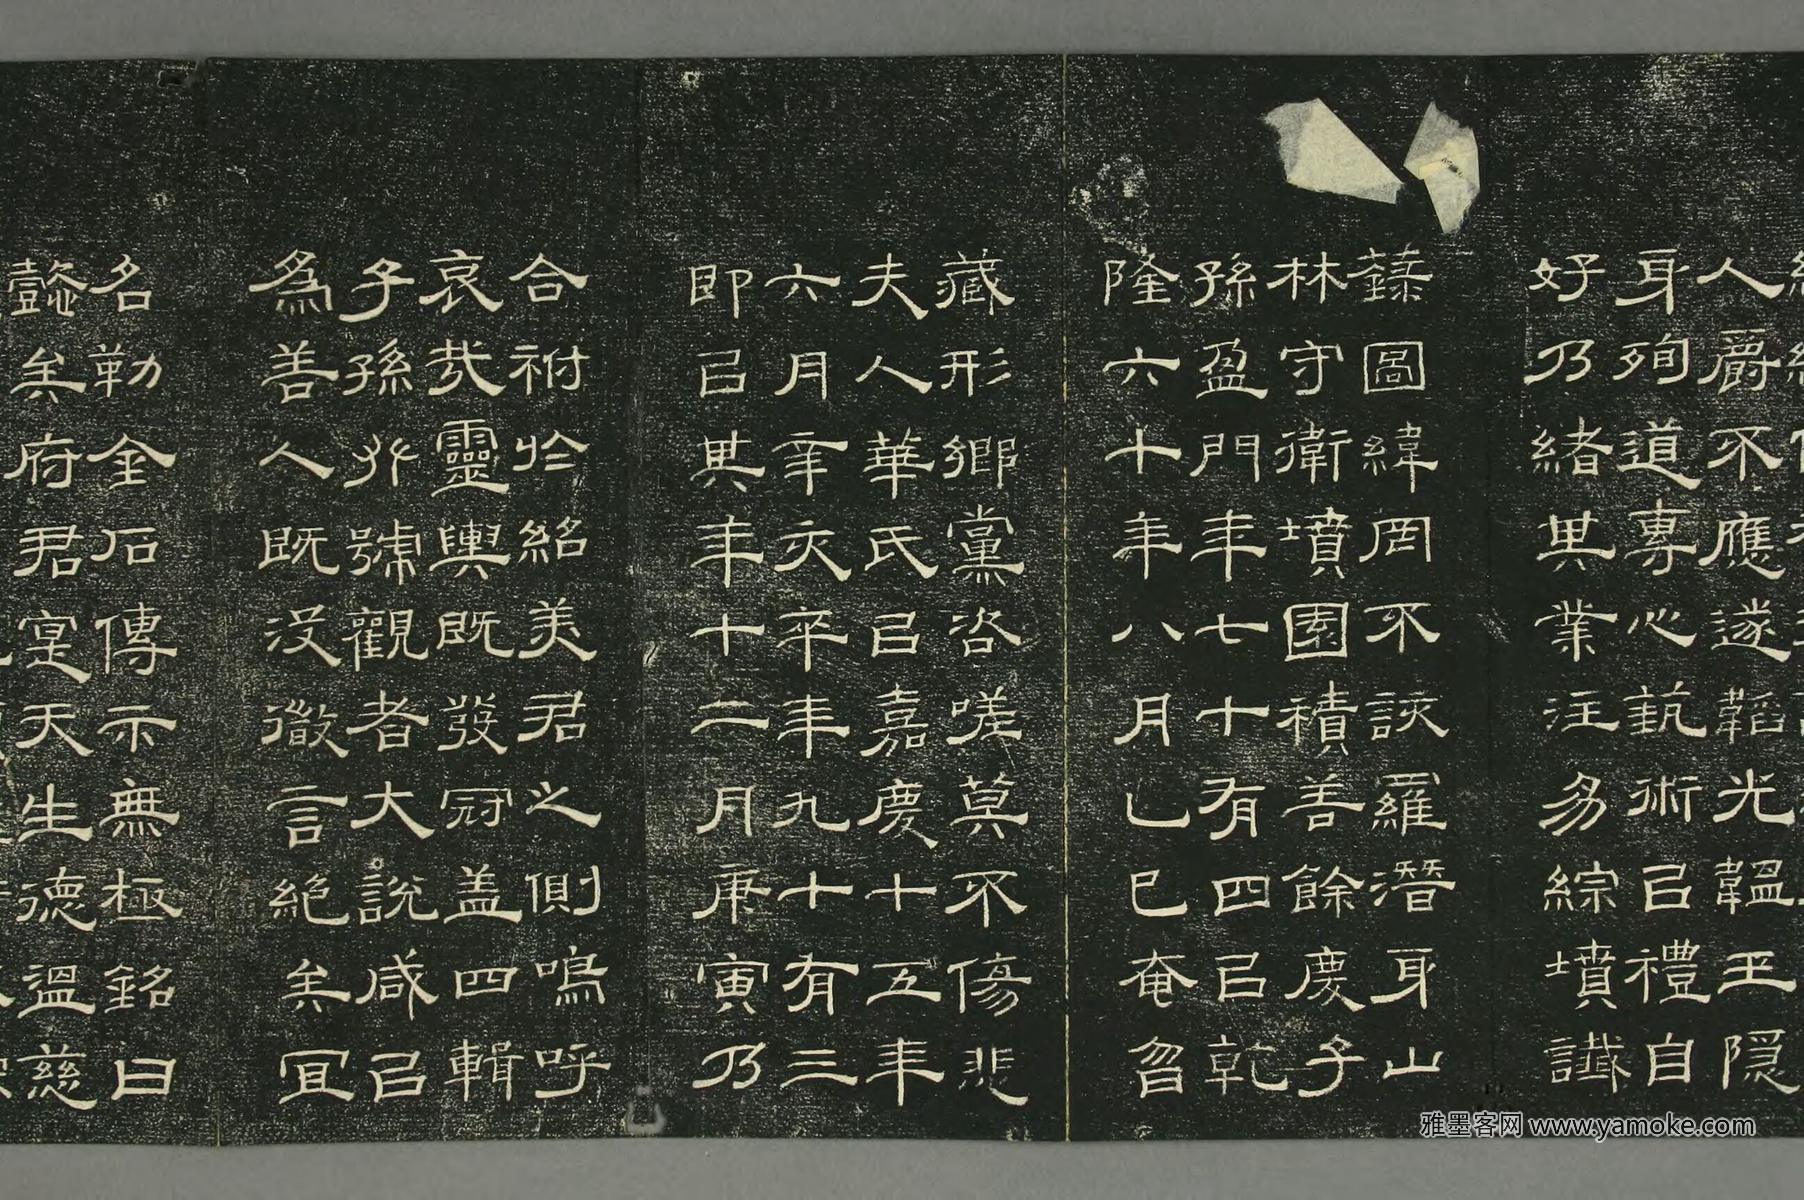 人爵不應遂韜光韞玉隱
身殉道專心蓺術㠯禮自
好乃緒其業注易綜墳讖
籙圖緯罔不該羅潛身山
林守衛墳園積善餘慶子
孫盈門年七十有四㠯乾
隆六十年八月乙巳奄曶
藏形鄉黨咨嗟莫不傷悲
夫人華氏㠯嘉慶十五年
六月辛亥卒年九十有三
即㠯其年十二月庚寅乃
合祔於紹美君之側嗚呼
哀哉靈輿既發冠盖四輯
子孫並號觀者大說咸㠯
爲善人既沒徽言絕矣宜
名勒金石傳示無極銘曰
懿矣府君寔天生德溫慈
雅墨客网 www.yamoke.com